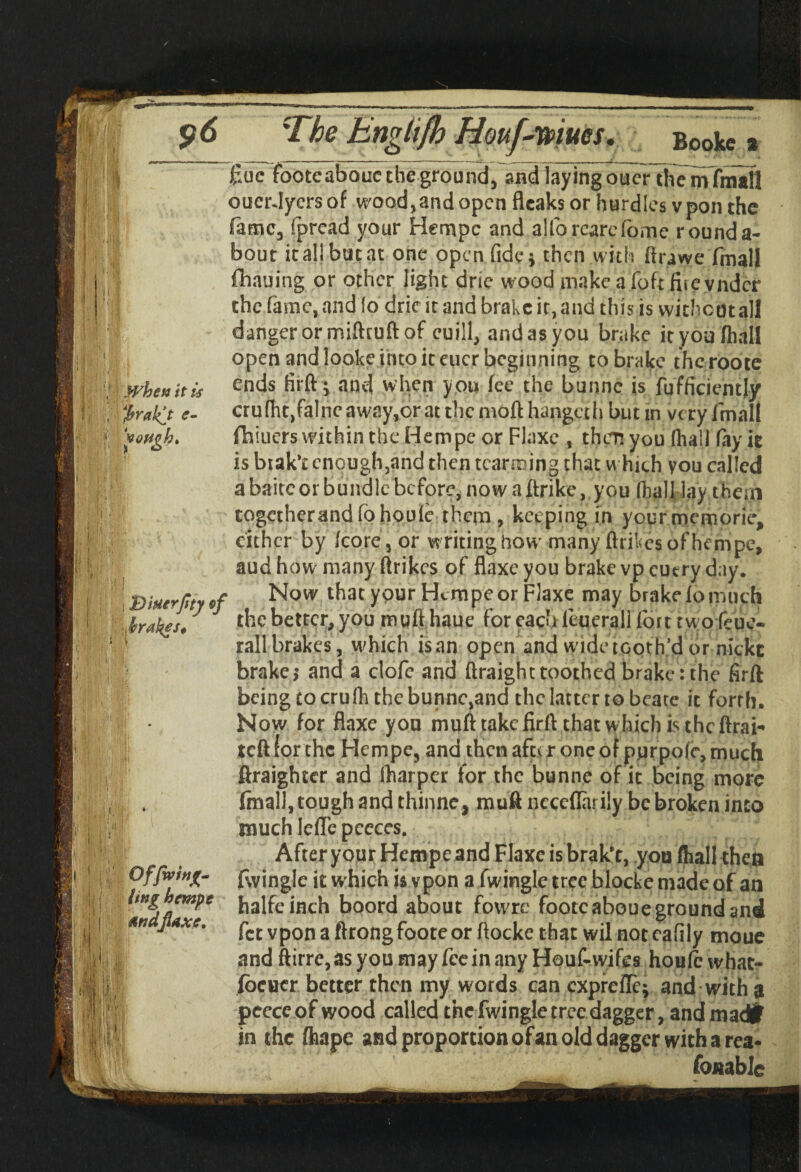 96 The Engliſh Houſ-wiues. Booke 2
fiue foote aboue the ground, and laying ouer them ſmall
ouer-lyers of wood, and open fleaks or hurdles vpon the
ſame, ſpread your Hempe and alſo reare ſome round a-
bout it all but at one open ſide; then with ſtrawe ſmall
ſhauing or other light drie wood make a ſoft fire vnder
the ſame, and ſo drie it and brake it, and this is without all
danger or miſtruſt of euill, and as you brake it you ſhall
open and looke into it euer beginning to brake the roote
When it is
brak't e-
nough.
ends firſt; and when you ſee the bunne is ſufficiently
cruſht, falne away, or at the moſt hangeth but in very ſmall
ſhiuers within the Hempe or Flaxe, then you ſhall ſay it
is brak't enough, and then tearming that which you called
a baite or bundle before, now a ſtrike, you ſhall lay them
together and ſo houſe them, keeping in your memorie,
either by ſcore, or writing how many ſtrikes of hempe,
aud how many ſtrikes of flaxe you brake vp euery day.
Diuerſity of
brakes.
Now that your Hempe or Flaxe may brake ſo much
the better, you muſt haue for each ſeuerall ſort two ſeue-
rall brakes, which is an open and wide tooth'd or nickt
brake; and a cloſe and ſtraight toothed brake: the firſt
being to cruſh the bunne, and the latter to beate it forth.
Now for flaxe you muſt take firſt that which is the ſtrai-
teſt for the Hempe, and then after one of purpoſe, much
ſtraighter and ſharper for the bunne of it being more
ſmall, tough and thinne, muſt neceſſarily be broken into
much leſſe peeces.
Of ſwing-
ling hempe
and flaxe.
After your Hempe and Flaxe is brak't, you ſhall then
ſwingle it which is vpon a ſwingle tree blocke made of an
halfe inch boord about fowre foote aboue ground and
ſet vpon a ſtrong foote or ſtocke that wil not eaſily moue
and ſtirre, as you may ſee in any Houſ-wifes houſe what-
ſoeuer better then my words can expreſſe; and with a
peece of wood called the ſwingle tree dagger, and made
in the ſhape and proportion of an old dagger with a rea-
ſonable